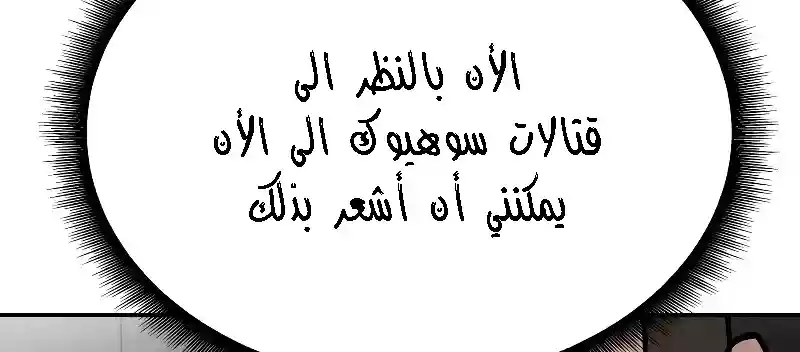 الأن بالنظر الى
قتالات سوهيوك الى الأن
يمكنني أن أشعر بذلك